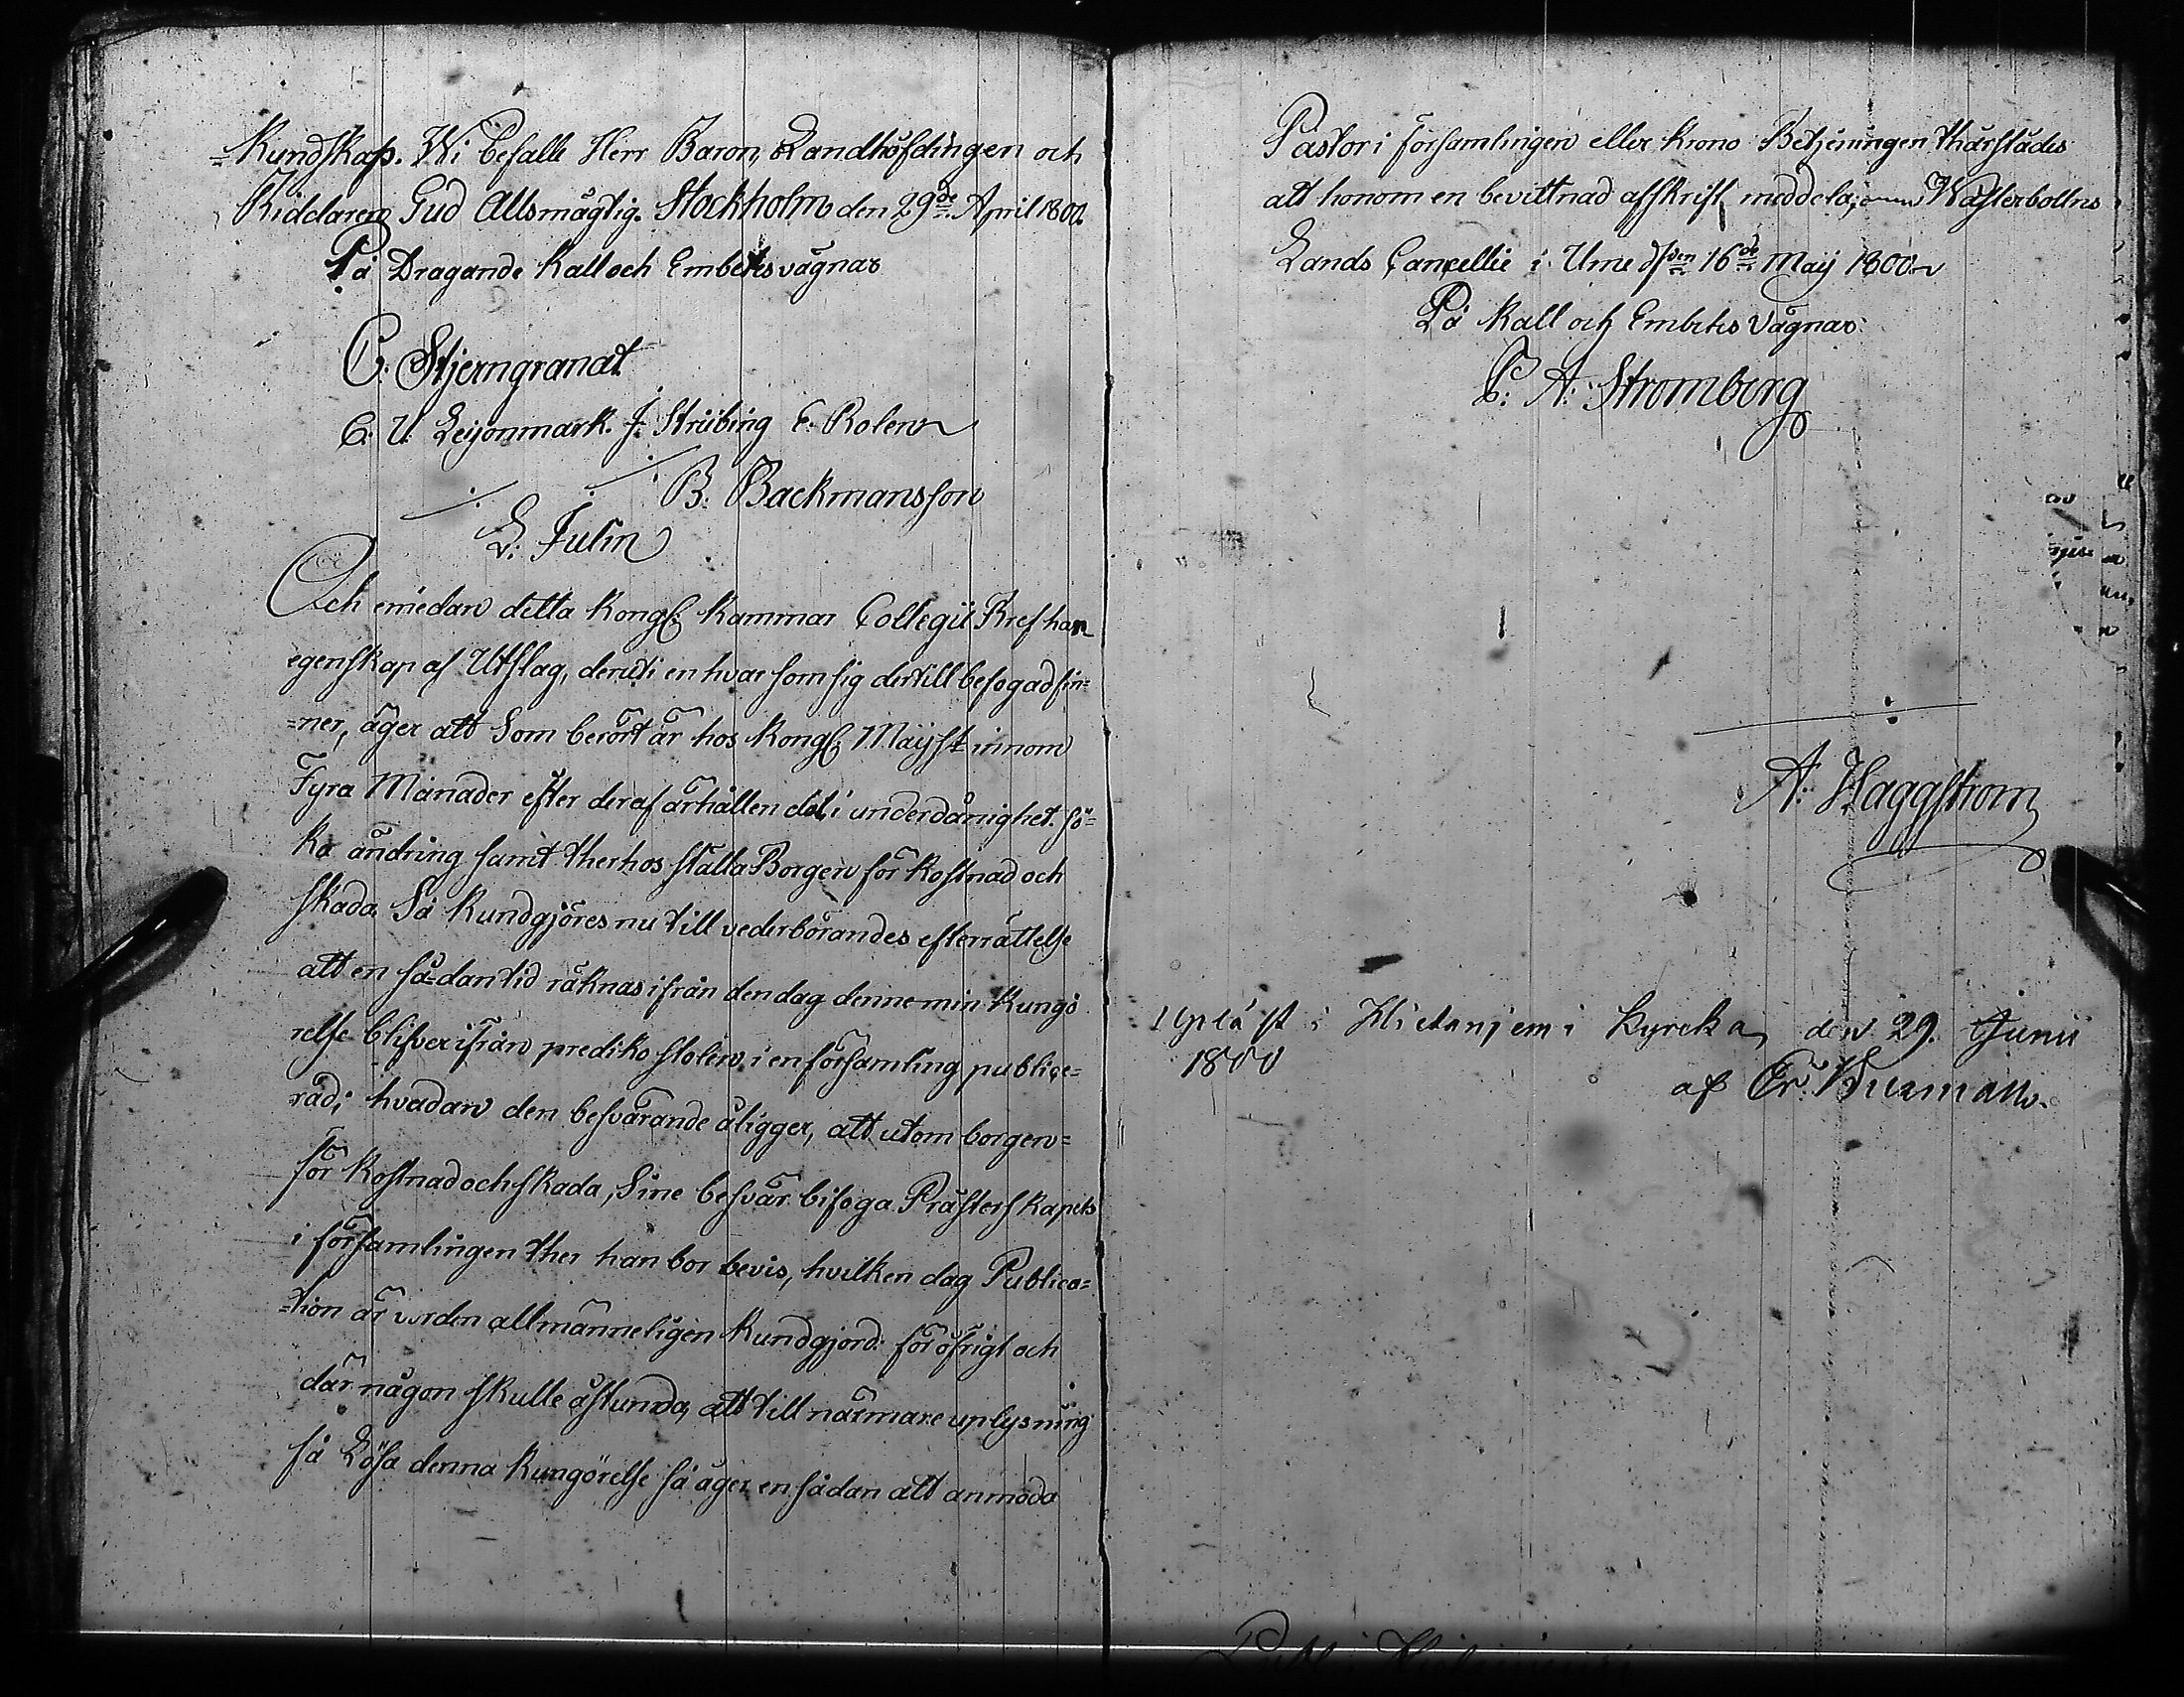 =Kundskap. Wi befalle Herr Baron, Landhöfdingen och
Riddaren Gud Allsmägtig. Stockholm den 29de April 1800.
På Dragande Kall och Embetes vägnar
C. Stjerngranat
C. U. Leijonmark. J. Strübing E. Rolen
B. Backmansson
L: Julin
Och emedan detta Kongl: Kammar Collegii Bref har
egenskap af Utslag, deruti en hvar som sig dertill befogad fin=
=ner, äger att Som berört är hos Kongl: Maijst innom
Fyra Månader efter deraf ärhållen del i underdånighet sö=
ka ändring samt therhos ställa Borgen för Kostnad och
skada, Så Kundgjöres nu till vederbörandes efterrättelse
att en så=dan tid räknas ifrån den dag denne min Kungö
relse blifver ifrån prediko stolen i en församling publice=
rad; hvadan den besvärande åligger, att utom borgen=
för Kostnad och skada, Sine besvär bifoga Prästerskapets
i församlingen ther han bor bevis, hvilken dag Publica=
=tion är vorden allmänneligen Kundgjord: för öfrigt och
där någon skulle åstunda, att till närmare uplysning
få Lösa denna Kungörelse så äger en sådan att anmoda
Pastor i församlingen eller Krono Betjeningen thärstädes
att honom en bevittnad afskrift meddela, Wästerbottns
Lands Cancellie i Umeå den 16de Maij 1800
På Kall och Embetes Vägnar
P. A. Stromberg
A: Häggstrom
Upläst i Hietaniemi Kyrcka den 29. Junii
1800
af Er. Burman.